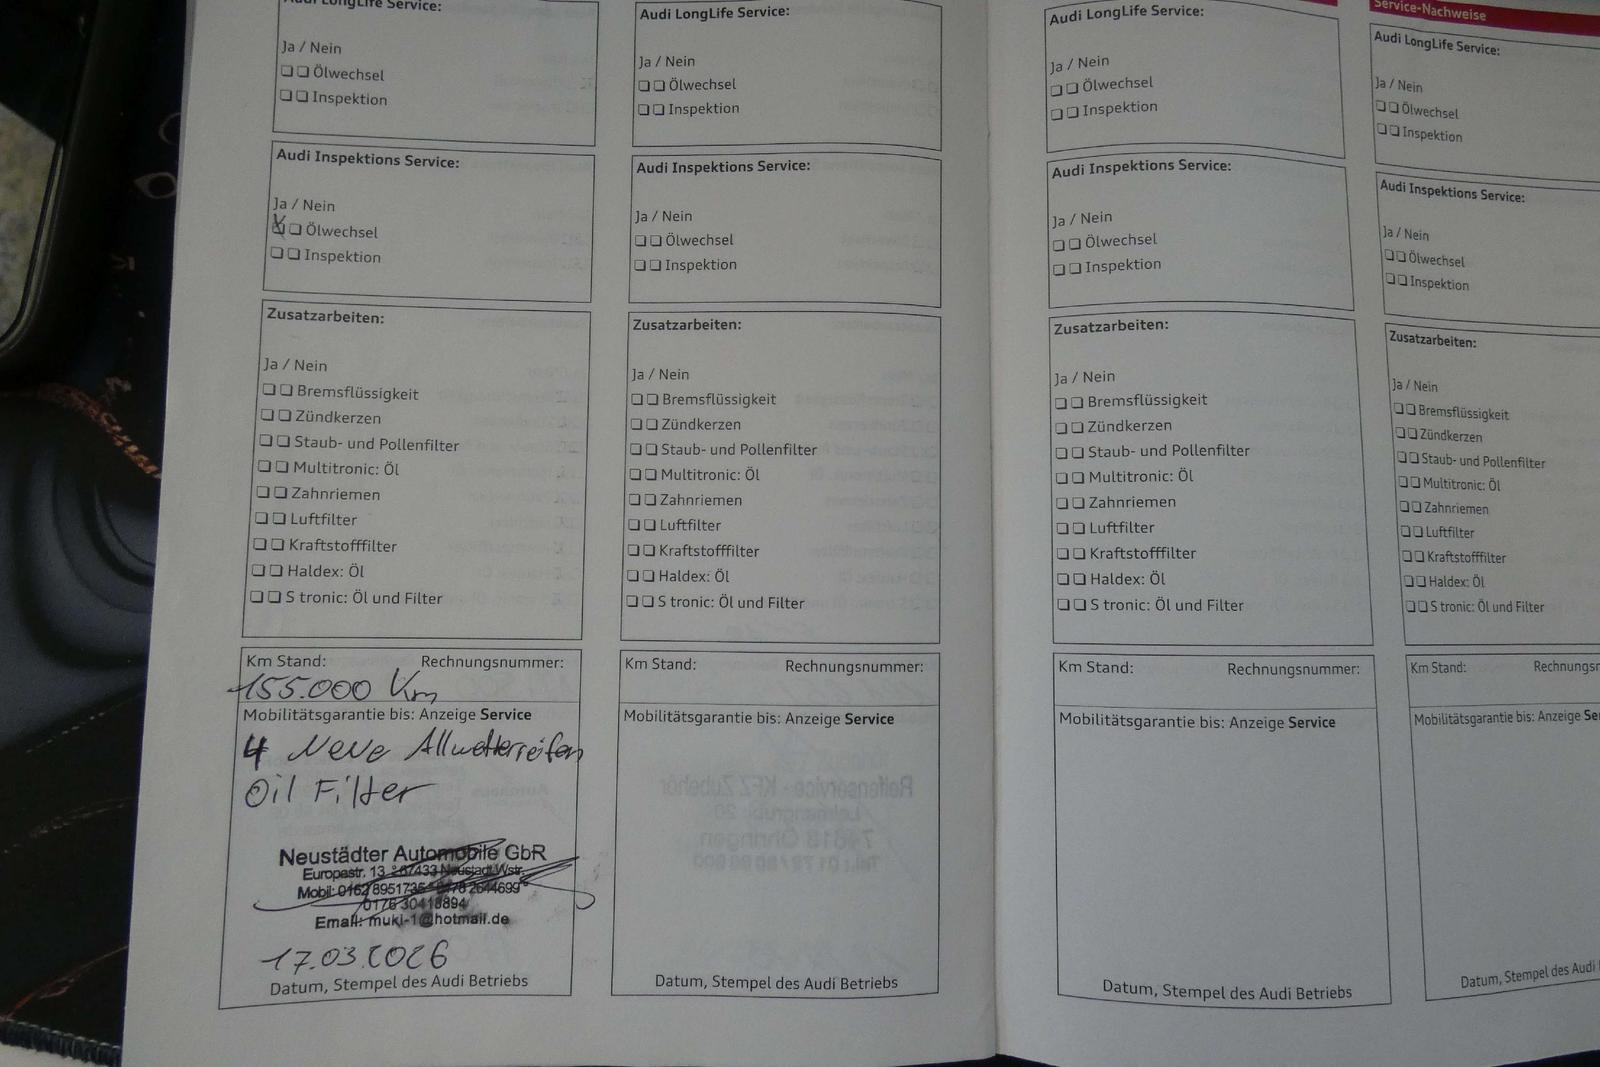 Audi LongLife Service:
Ja / Nein
Ölwechsel
Inspektion
Audi Inspektions Service:
Ja / Nein
Ölwechsel
Inspektion
Zusatzarbeiten:
Ja / Nein
Bremsflüssigkeit
Zündkerzen
Staub- und Pollenfilter
Multitronic: Öl
Zahnriemen
Luftfilter
Kraftstofffilter
Haldex: Öl
S tronic: Öl und Filter
Km Stand: Rechnungsnummer:
155.000 Km
Mobilitätsgarantie bis: Anzeige Service
4 Neue Allwetterreifen
Oil Filter
Neustädter Automobile GbR
Europastr. 13 67433 Neustadt/Wstr.
Mobil: 0162 8951736 0178 2644699
0176 30418894
Email: muki-1@hotmail.de
17.03.2026
Datum, Stempel des Audi Betriebs
Audi LongLife Service:
Ja / Nein
Ölwechsel
Inspektion
Audi Inspektions Service:
Ja / Nein
Ölwechsel
Inspektion
Zusatzarbeiten:
Ja / Nein
Bremsflüssigkeit
Zündkerzen
Staub- und Pollenfilter
Multitronic: Öl
Zahnriemen
Luftfilter
Kraftstofffilter
Haldex: Öl
S tronic: Öl und Filter
Km Stand: Rechnungsnummer:
Mobilitätsgarantie bis: Anzeige Service
Datum, Stempel des Audi Betriebs
Audi LongLife Service:
Ja / Nein
Ölwechsel
Inspektion
Audi Inspektions Service:
Ja / Nein
Ölwechsel
Inspektion
Zusatzarbeiten:
Ja / Nein
Bremsflüssigkeit
Zündkerzen
Staub- und Pollenfilter
Multitronic: Öl
Zahnriemen
Luftfilter
Kraftstofffilter
Haldex: Öl
S tronic: Öl und Filter
Km Stand: Rechnungsnummer:
Mobilitätsgarantie bis: Anzeige Service
Datum, Stempel des Audi Betriebs
Service-Nachweise
Audi LongLife Service:
Ja / Nein
Ölwechsel
Inspektion
Audi Inspektions Service:
Ja / Nein
Ölwechsel
Inspektion
Zusatzarbeiten:
Ja / Nein
Bremsflüssigkeit
Zündkerzen
Staub- und Pollenfilter
Multitronic: Öl
Zahnriemen
Luftfilter
Kraftstofffilter
Haldex: Öl
S tronic: Öl und Filter
Km Stand: Rechnungsn
Mobilitätsgarantie bis: Anzeige Se
Datum, Stempel des Audi